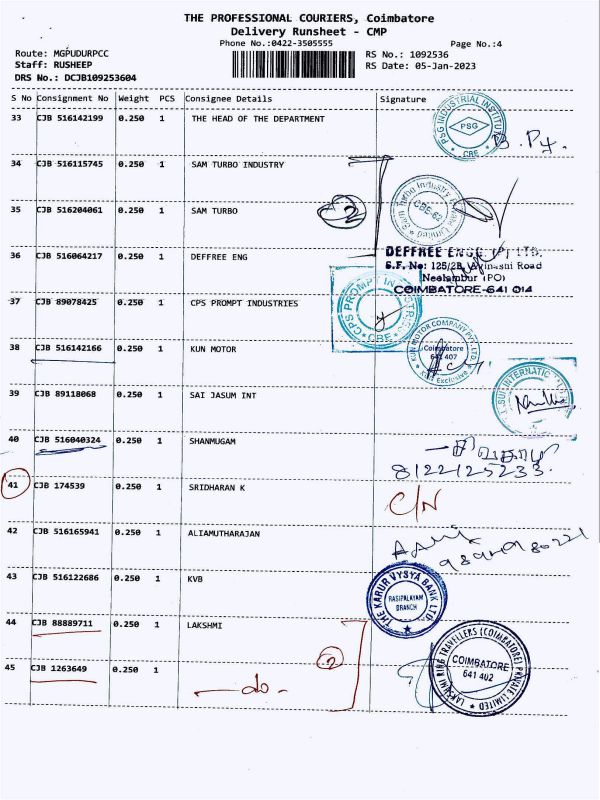 THE PROFESSIONAL COURIERS, Coimbatore
Delivery Runsheet - CMP
Phone No.:0422-3505555
Page No.:4
Route: MGPUDURPCC
RS No.: 1092536
Staff: RUSHEEP
RS Date: 05-Jan-2023
DRS No.: DCJB109253604
S No Consignment No Weight PCS Consignee Details Signature
33 CJB 516142199 0.250 1 THE HEAD OF THE DEPARTMENT
PSG INDUSTRIAL INSTITUTE
PSG
CBE
34 CJB 516115745 0.250 1 SAM TURBO INDUSTRY
35 CJB 516204061 0.250 1 SAM TURBO
2
Sam Turbo Industry Private Limited
CBE-62
36 CJB 516064217 0.250 1 DEFFREE ENG
DEFFREE ENGG (P) LTD.
S.F. No: 125/2B, Avinashi Road
Neelambur (PO)
COIMBATORE-641 014
37 CJB 89078425 0.250 1 CPS PROMPT INDUSTRIES
CPS PROMPT INDUSTRIES
CBE
38 CJB 516142166 0.250 1 KUN MOTOR
KUN MOTOR COMPANY PVT. LTD
Coimbatore
641 407
Kun Exclusive
39 CJB 89118068 0.250 1 SAI JASUM INT
40 CJB 516040324 0.250 1 SHANMUGAM
8122125233
41 CJB 174539 0.250 1 SRIDHARAN K
C/N
42 CJB 516165941 0.250 1 ALIAMUTHARAJAN
43 CJB 516122686 0.250 1 KVB
THE KARUR VYSYA BANK LTD
RASIPALAYAM
BRANCH
44 CJB 88889711 0.250 1 LAKSHMI
2
45 CJB 1263649 0.250 1
-do-
LAKSHMI RING TRAVELLERS (COIMBATORE) PRIVATE LIMITED
COIMBATORE
641 402